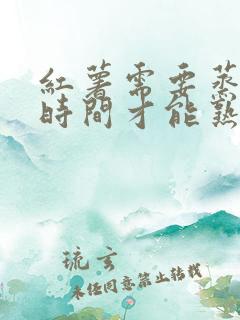 紅薯需要蒸
時間才能熟
琉玄
未经同意禁止转载